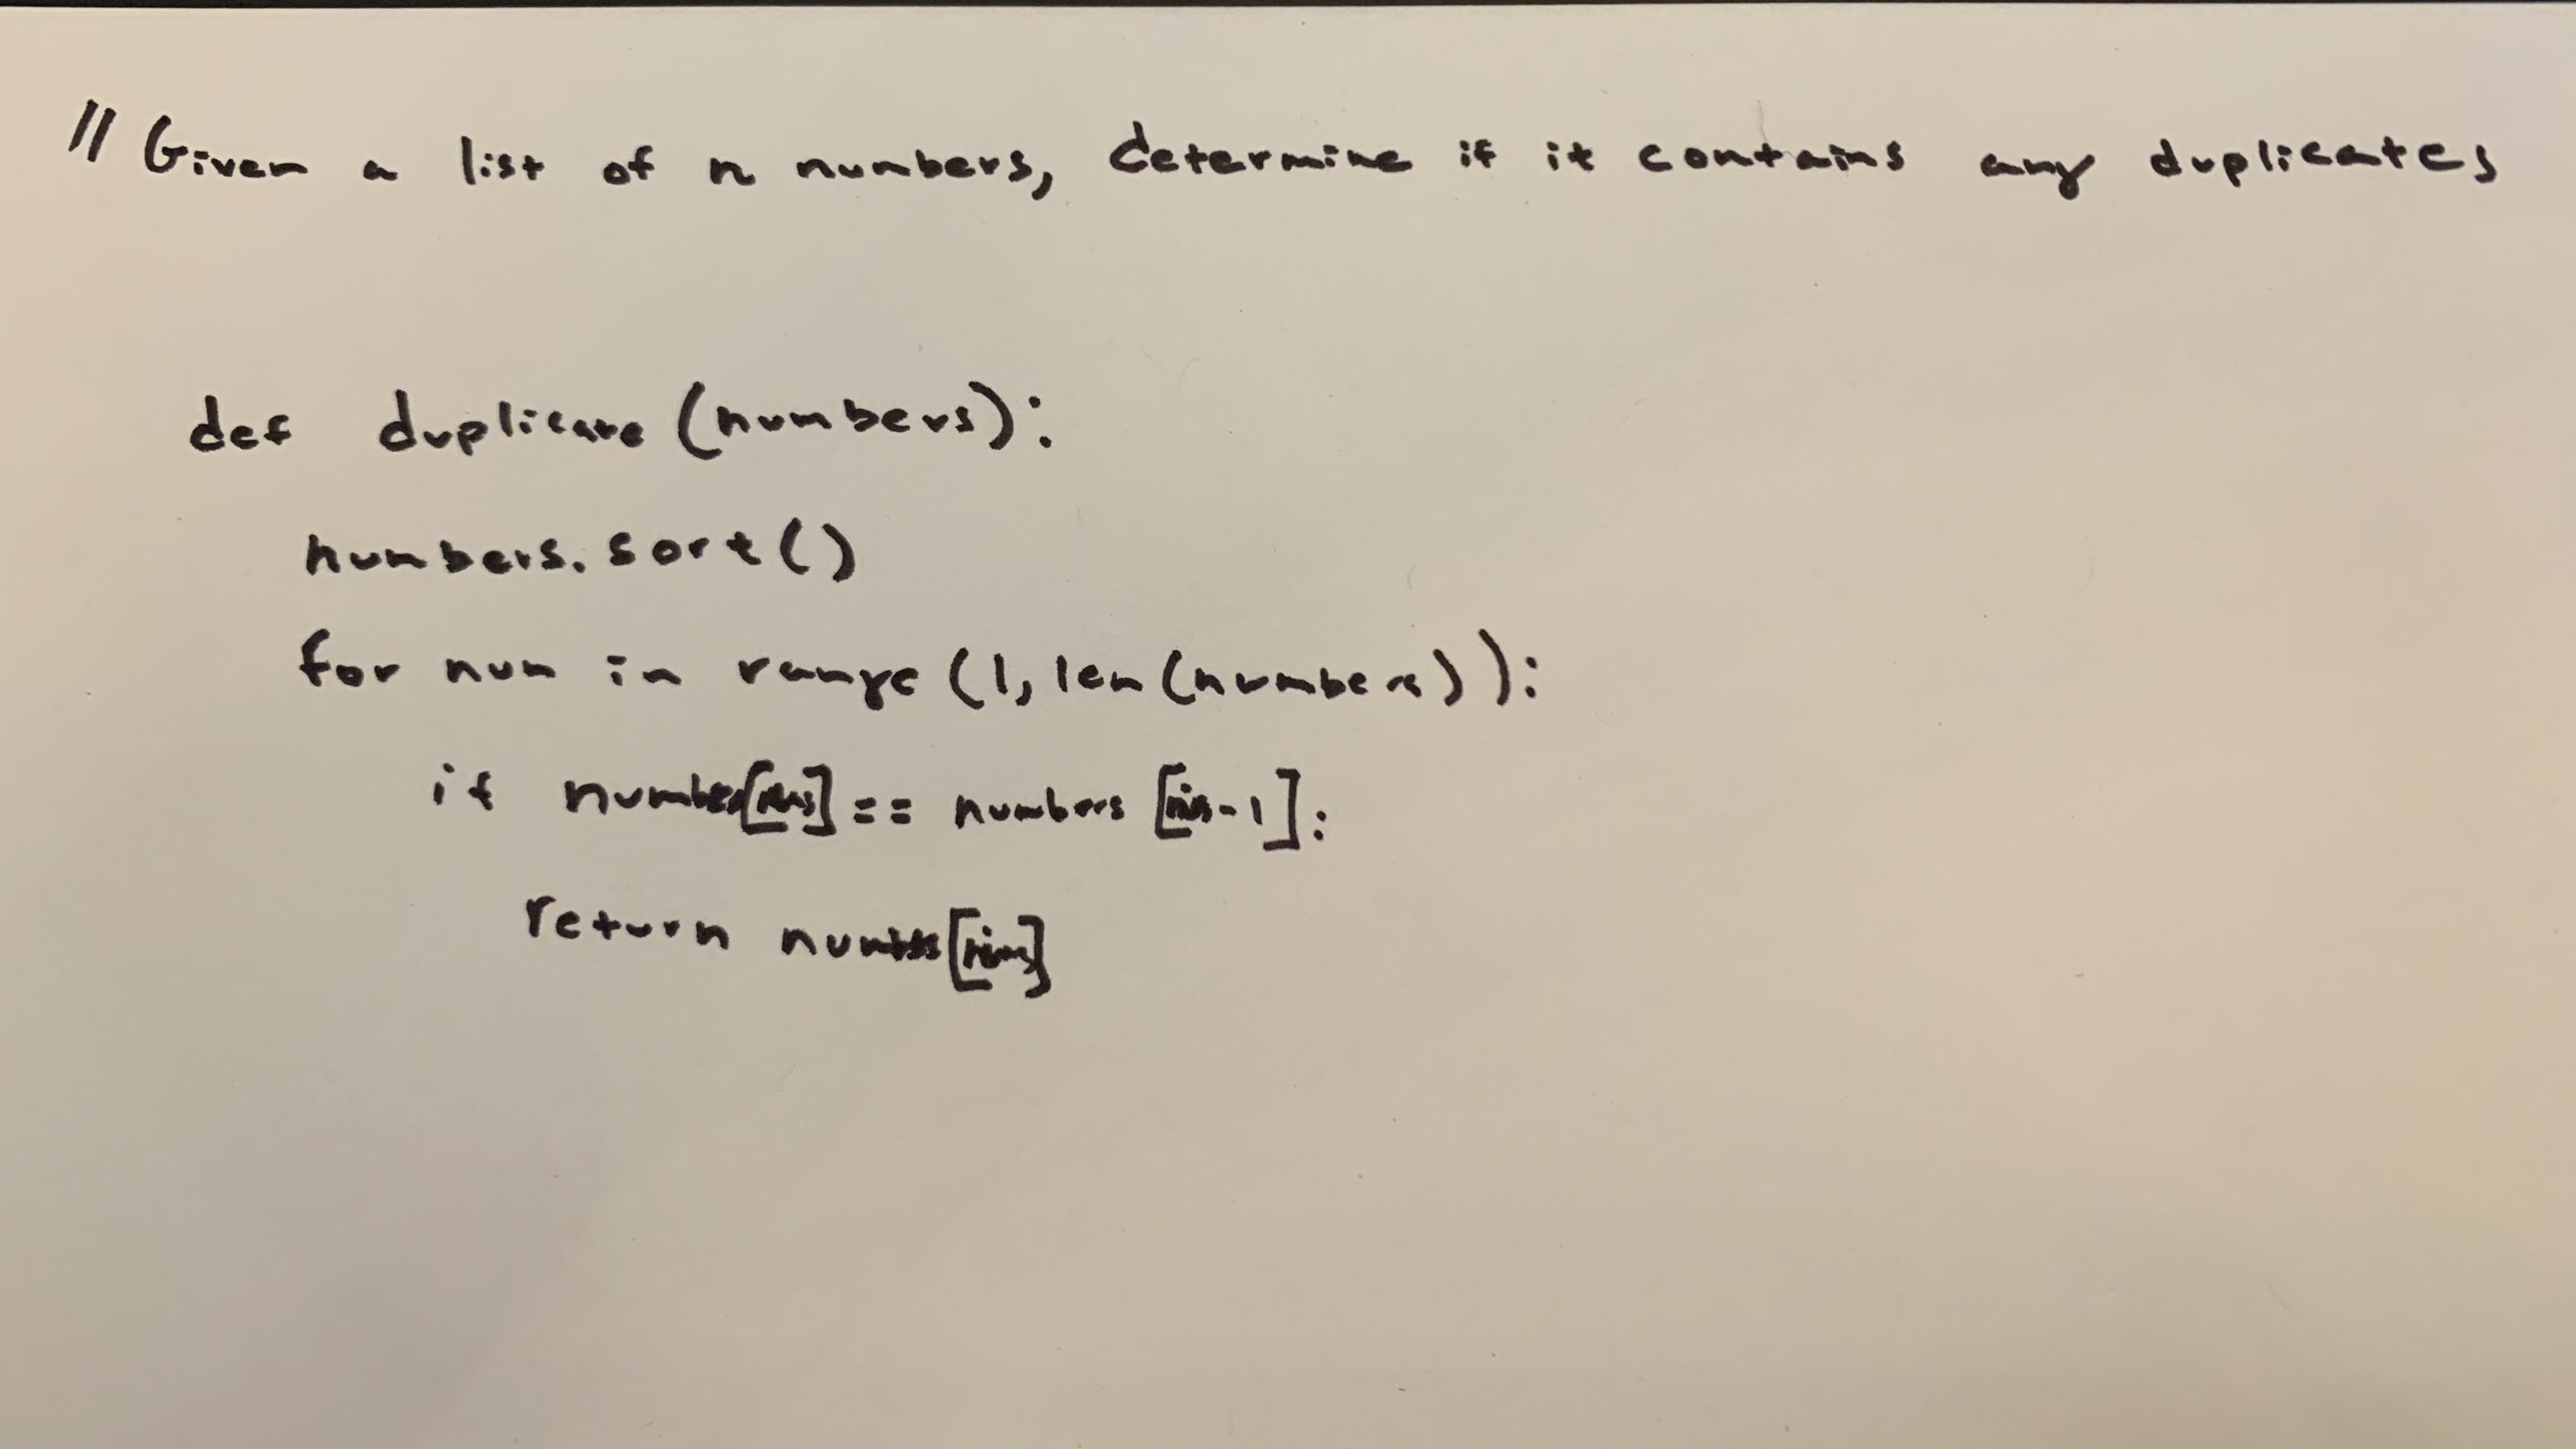 // Given a list of n numbers, determine if it contains any duplicates
def duplicate (numbers):
numbers.sort()
for num in range (1, len (numbers)):
if numbers[num] == numbers [num-1]:
return numbers[num]